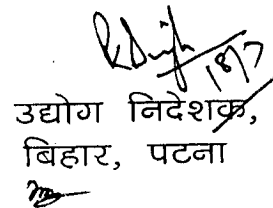 18/7
उद्योग निदेशक,
बिहार, पटना